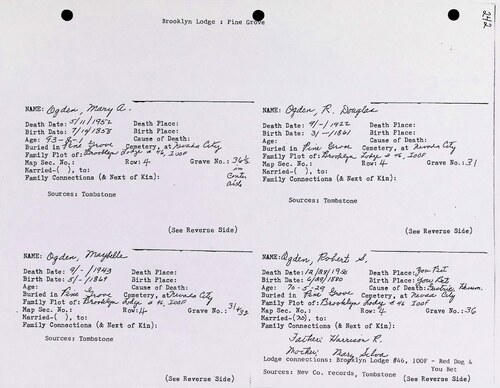 Brooklyn Lodge : Pine Grove
242
NAME: Ogden, Mary A.
Death Date: 5/11/1952 Death Place:
Birth Date: 7/14/1858 Birth Place:
Age: 93-8-1 Cause of Death:
Buried in Pine Grove Cemetery, at Nevada City
Family Plot of: Brooklyn Lodge # 46, IOOF
Map Sec. No.: Row: 4 Grave No.: 36½
in Center Aisle
Married-( ), to:
Family Connections (& Next of Kin):
Sources: Tombstone
(See Reverse Side)
NAME: Ogden, R. Douglas
Death Date: 9/-/1922 Death Place:
Birth Date: 3/-/1861 Birth Place:
Age: Cause of Death:
Buried in Pine Grove Cemetery, at Nevada City
Family Plot of: Brooklyn Lodge # 46, IOOF
Map Sec. No.: Row: 4 Grave No.: 31
Married-( ), to:
Family Connections (& Next of Kin):
Sources: Tombstone
(See Reverse Side)
NAME: Ogden, Maybelle
Death Date: 9/-/1943 Death Place:
Birth Date: 5/-/1869 Birth Place:
Age: Cause of Death:
Buried in Pine Grove Cemetery, at Nevada City
Family Plot of: Brooklyn Lodge # 46, IOOF
Map Sec. No.: Row: 4 Grave No.:
Married-( ), to:
Family Connections (& Next of Kin):
Sources: Tombstone
(See Reverse Side)
NAME: Ogden, Robert S.
Death Date: Death Place: You Bet
Birth Date: Birth Place: You Bet
Age: 70-5-29 Cause of Death: Gastric Hem.
Buried in Pine Grove Cemetery, at Nevada City
Family Plot of: Brooklyn Lodge # 46, IOOF
Map Sec. No.: Row: 4 Grave No.: 36
Married-(no), to:
Family Connections (& Next of Kin):
Father: Harrison R.
Mother: Mary Silva
Lodge connections: Brooklyn Lodge #46, IOOF - Red Dog &
You Bet
Sources: Nev Co. records, Tombstone
(See Reverse Side)